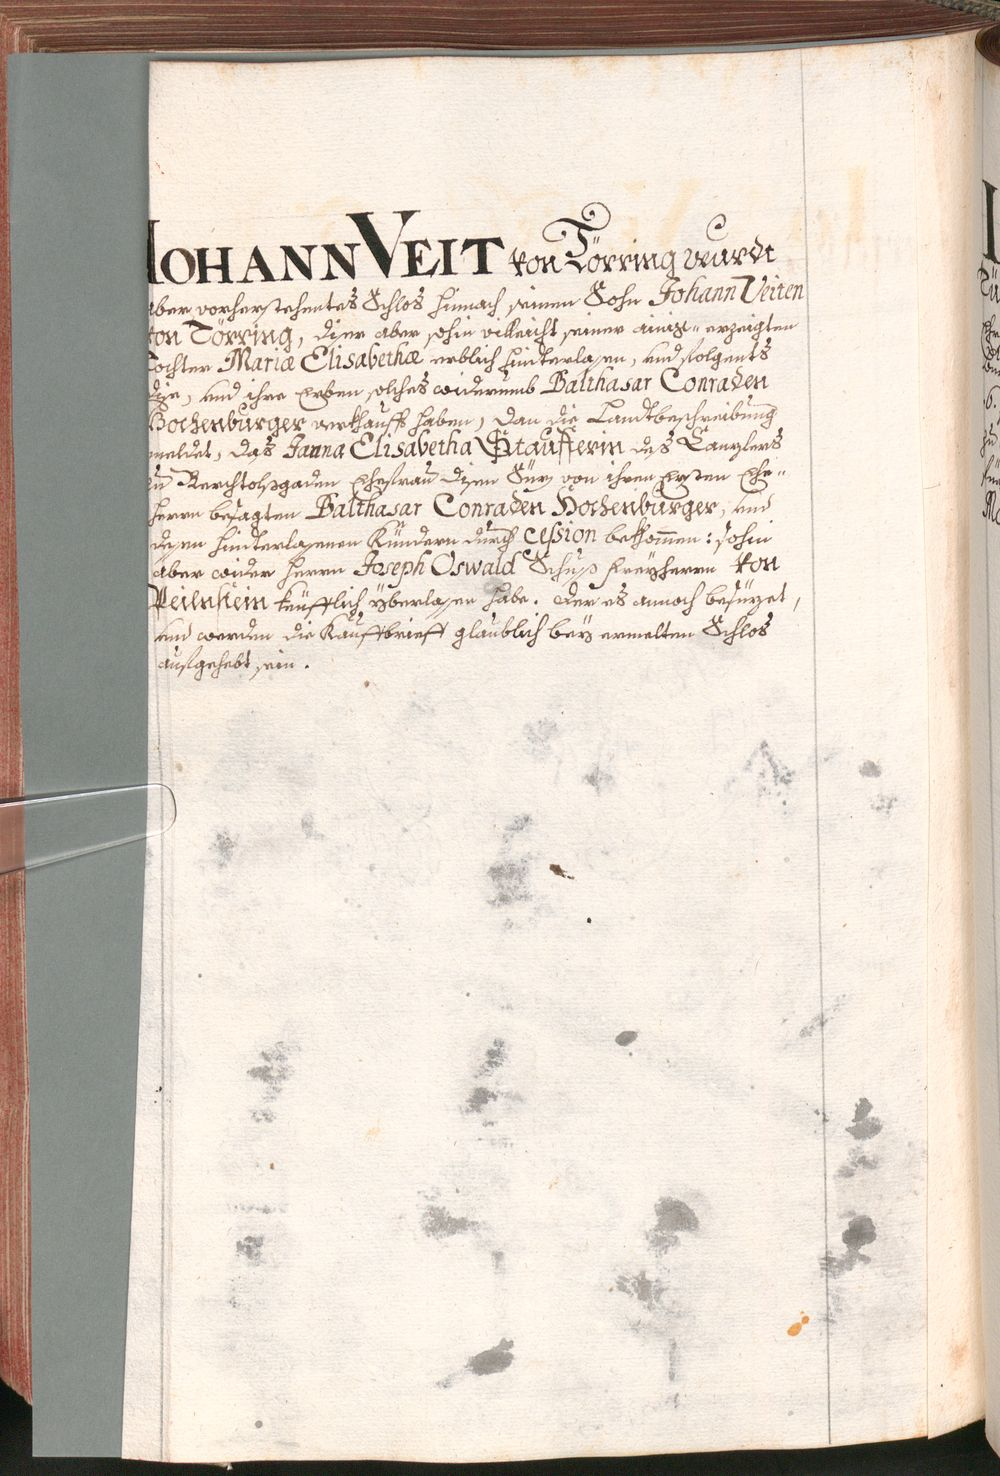 JOHANN VEIT von Törring wurdt
aber vorherstehentes Schlos hinnach seinen Sohn Johann Veiten
von Törring, diser aber sohin villeicht seiner ainig= erzeigten
Tochter Mariæ Elisabethæ erblich hinterlasen, und folgents
dise, und ihre Erben solches widerumb Balthasar Conraden
Hochenburger verkhaufft haben, dan die Landtbeschreibung
meldet, das Janna Elisabetha Staufferin des Canzlers
zu Berchtolsgaden Ehefrau disen Siz von ihren Ersten Ehe=
herrn besagten Balthasar Conraden Hochenburger, und
desen hinterlasenen Kündern durch cession bekommen: sohin
aber wider herrn Joseph Oswald Schuss Freyherrn von
Peilnstein keüfflich yberlasen habe. der es annoch besizet,
und werden die Kauffbrieff glaublich bey ermelten Schlos
aufgehebt sein.